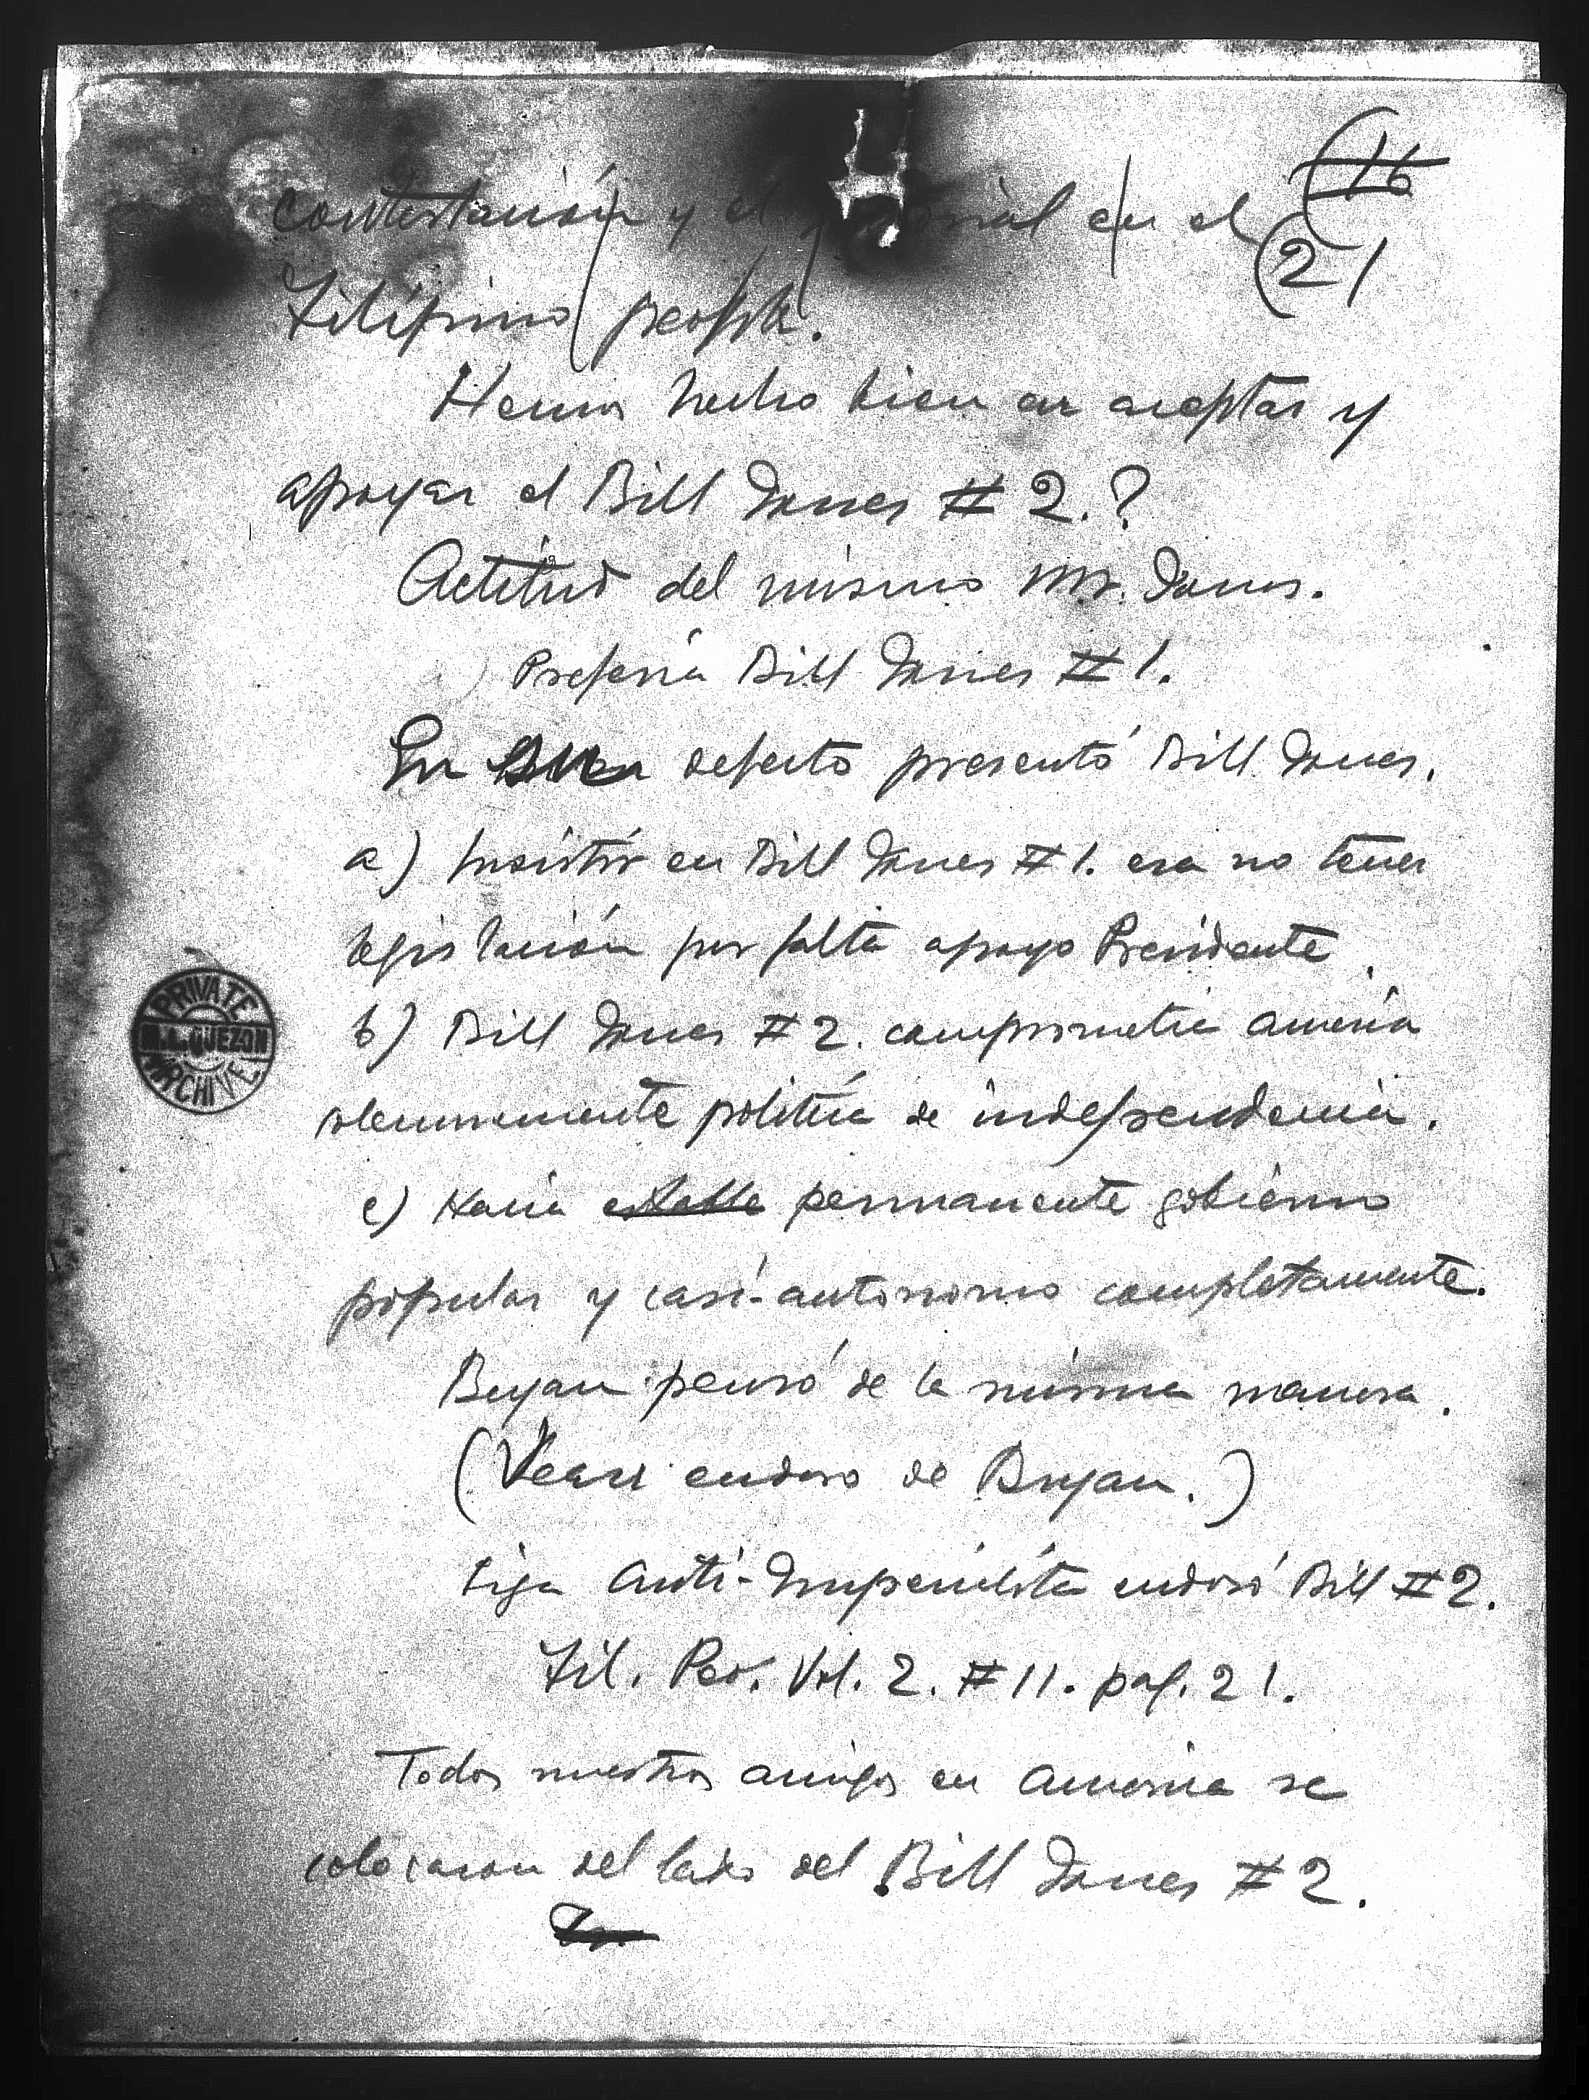 16
contestación y el en el
21
Filipino people.
Hemos hecho bien en aceptar y
apoyar el Bill Jones # 2.?
Actitud del mismo Mr. Jones.
Prefería Bill Jones # 1.
En su defecto presentó Bill Jones.
a) Insistir en Bill Jones # 1. era no tener
legislación por falta apoyo Presidente.
b) Bill Jones # 2. comprometía América
solemnemente política de independencia.
c) Hacía estable permanente gobierno
popular y casi-autonomo completamente.
Bryan pensó de la misma manera.
(Vease endoso de Bryan.)
Liga Anti-Imperialista endosó Bill # 2.
Fil. Peo. Vol. 2. # 11. pag. 21.
Todos nuestros amigos en America se
colocaron del lado del Bill Jones # 2.
PRIVATE
M.L. QUEZON
ARCHIVE